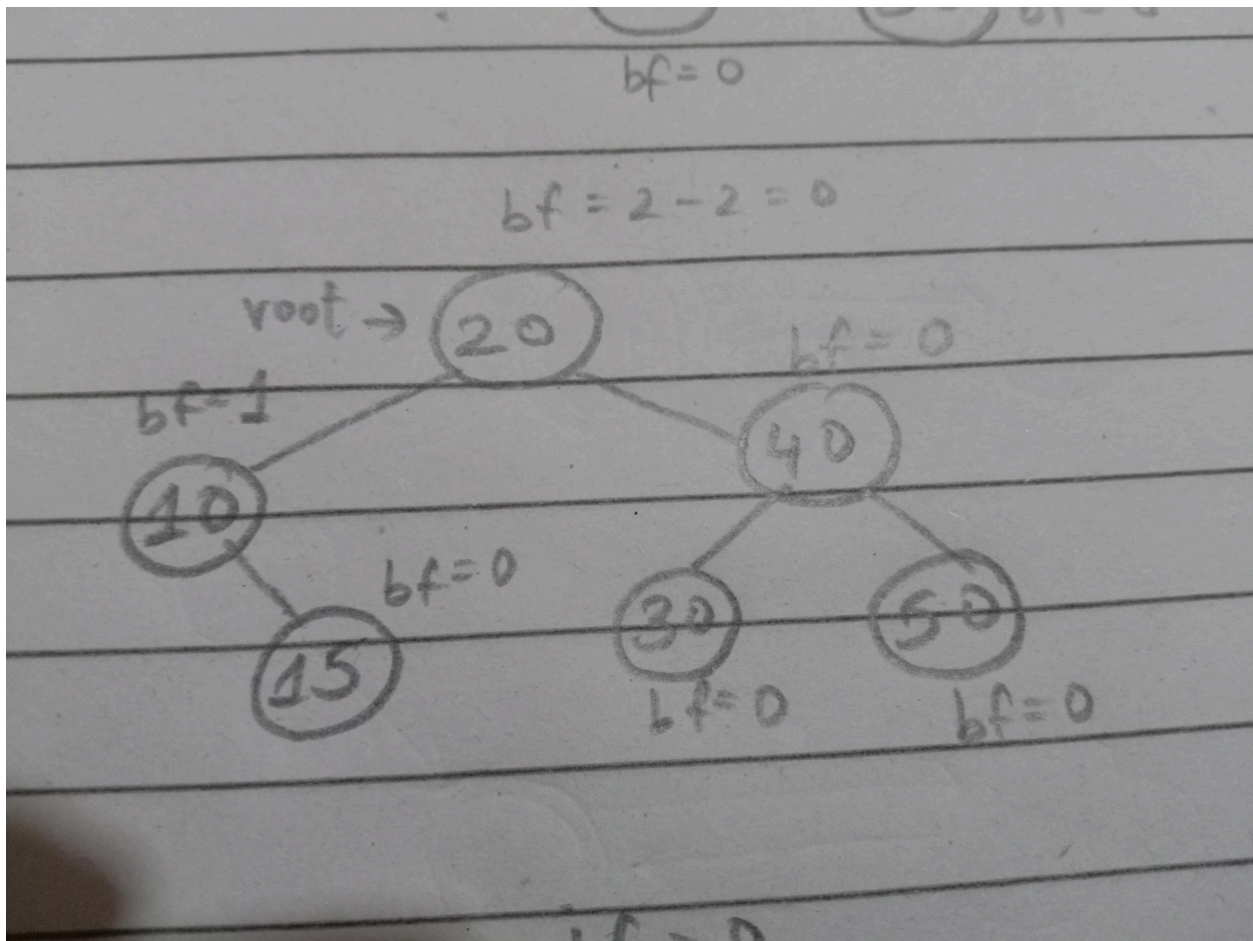 bf = 0
bf = 2 - 2 = 0
root → 20
bf = 0
bf = 1
40
10
bf = 0
30
50
15
bf = 0
bf = 0